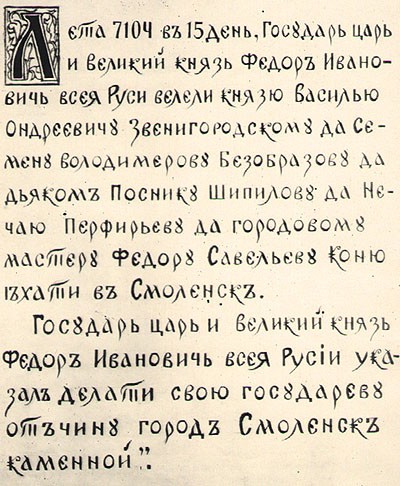 Лѣта 7104 въ 15 день, Государь царь
и великий князь Федоръ Ивано-
вичь всея Руси велели князю Василью
Ондреевичу Звенигородскому да Се-
мену володимерову Безобразову да
дьякомъ Поснику Шипилову да Не-
чаю Перфирьеву да городовому
мастеру Федору Савельеву Коню
ѣхати въ Смоленскъ.
Государь царь и великий князь
Федоръ Ивановичь всея Русіи ука-
залъ делати свою государеву
отъчину городъ Смоленскъ
каменной".